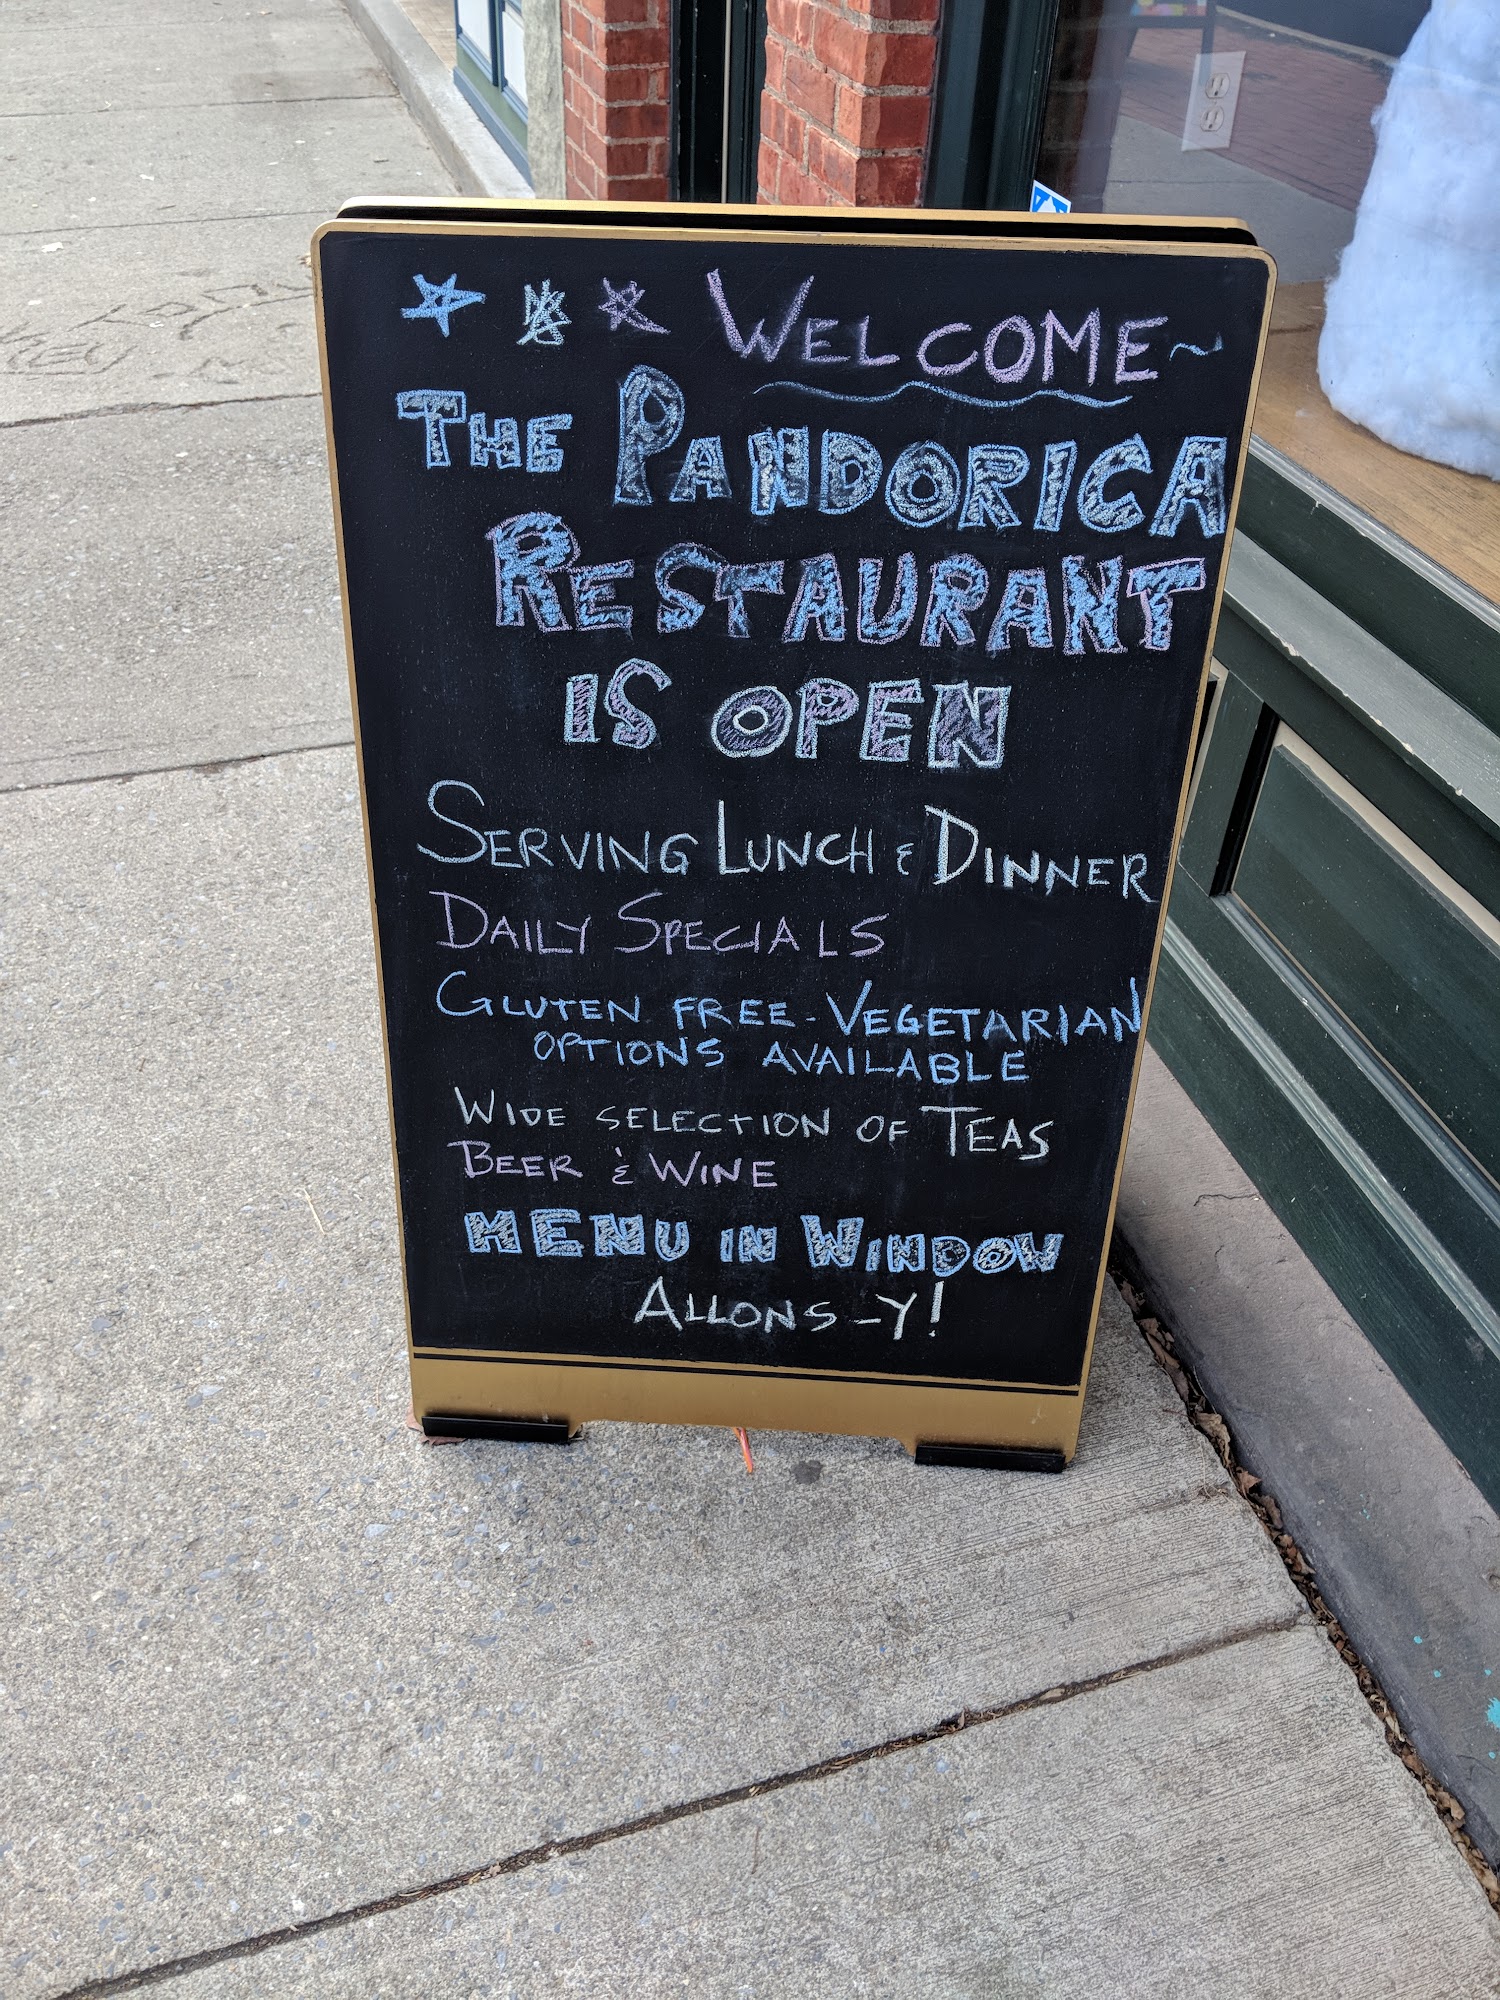 WELCOME~
THE PANDORICA
RESTAURANT
IS OPEN
SERVING LUNCH & DINNER
DAILY SPECIALS
GLUTEN FREE - VEGETARIAN
OPTIONS AVAILABLE
WIDE SELECTION OF TEAS
BEER & WINE
MENU IN WINDOW
ALLONS-Y!